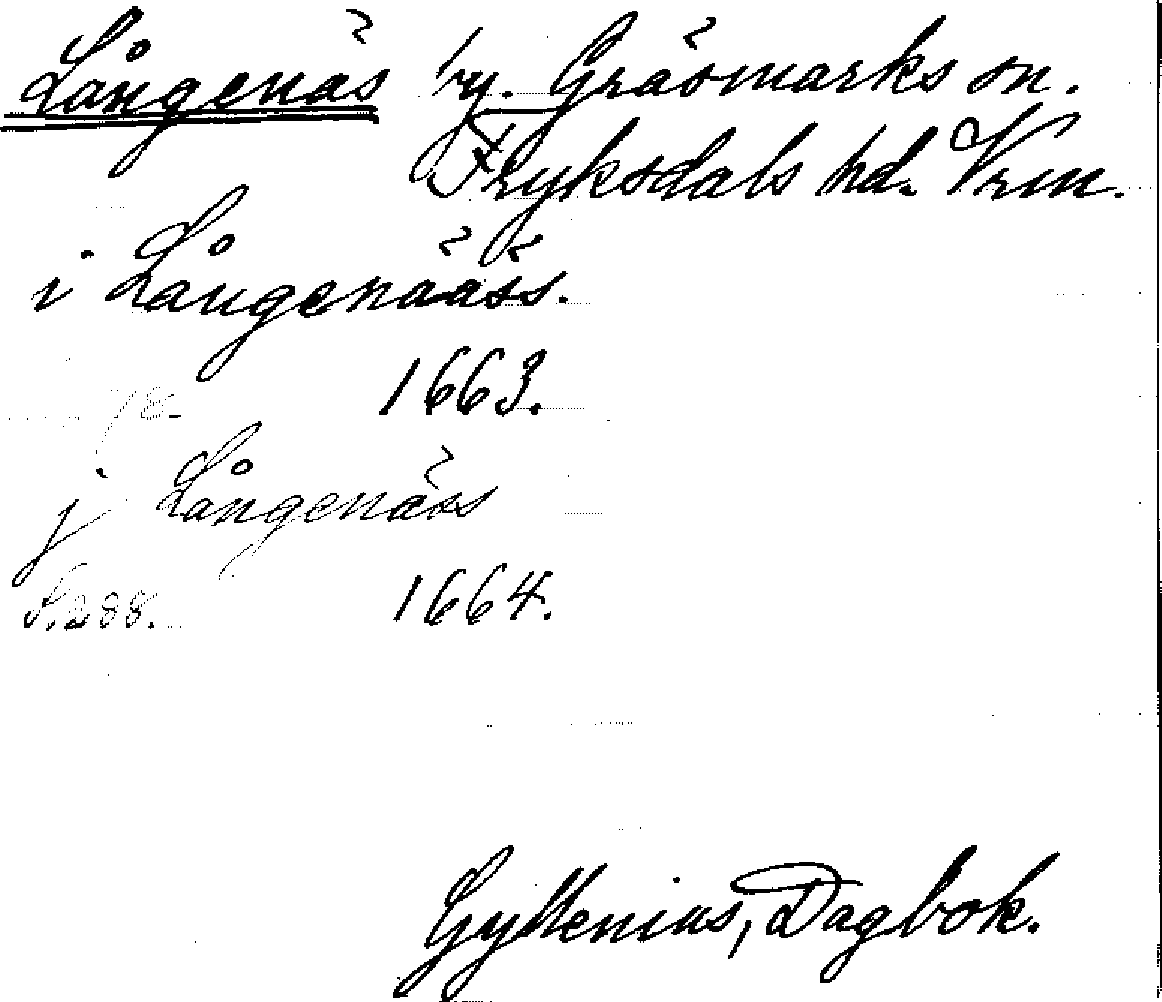 Långenäs by. Gräsmarks sn.
Fryksdals hd. Vrm.
i Långenääss.
1663.
j Långenäss
S. 288. 1664.
Gyllenius, Dagbok.